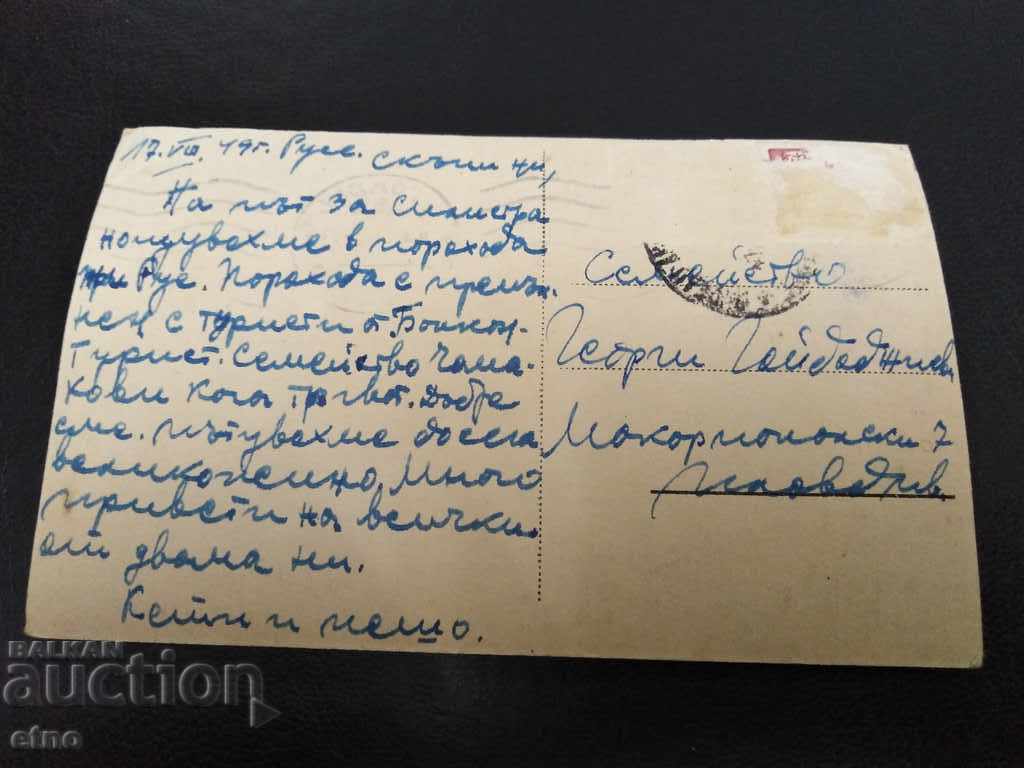 17.VIII.49г. Русе. Скъпи ни,
На път за Силистра
нощувахме в парахода
при Русе. Парахода е препъл-
нен с туристи от Балкан-
Турист. Семейство Чама-
кови кога тръгват. Добре
сме. Пътувахме досега
великолепно. Много
привети на всички
от двама ни.
Кети и Пешо.
Семейство
Георги Гайдаджиеви
Макариополски 7
Пловдив.
BALKAN
auction
etno